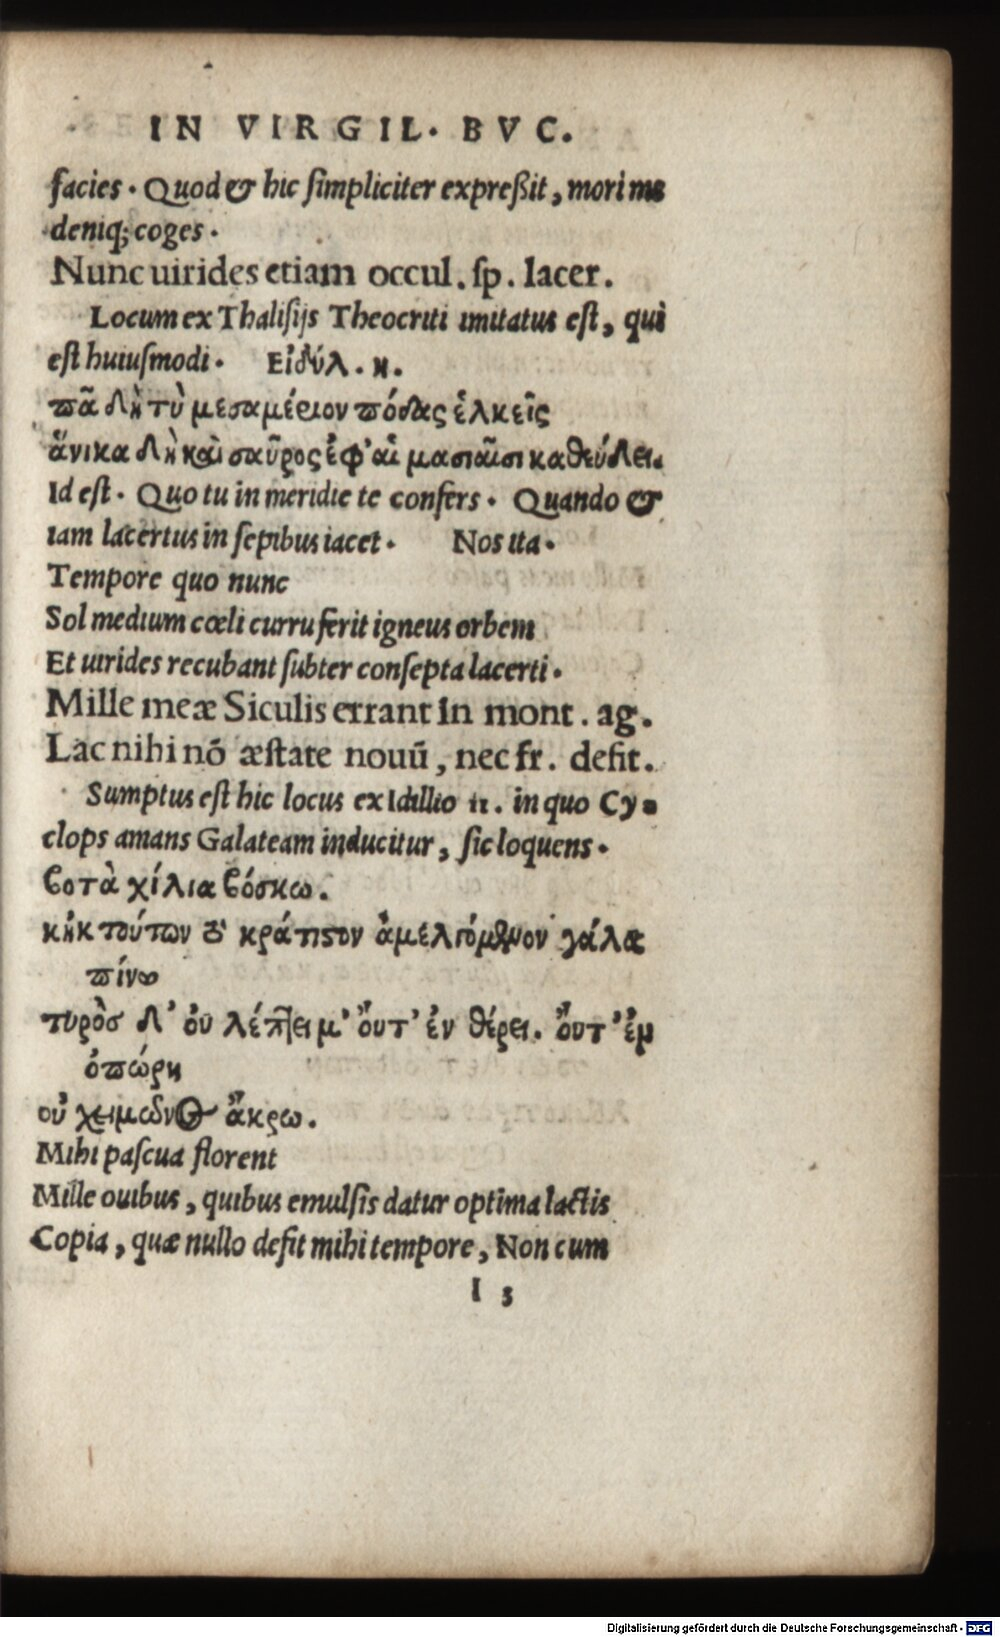 IN VIRGIL. BVC.
facies. Quod & hic simpliciter expreßit, mori me
deniq; coges.
Nunc uirides etiam occul. sp. lacer.
Locum ex Thalisijs Theocriti imitatus est, qui
est huiusmodi. Εἰδύλ. η.
πᾶ δὴ τὺ μεσαμέριον πόδας ἕλκεῖς
ἅνικα δὴ καὶ σαῦρος ἐφ' αἱ μασιαῖσι καθεύδει.
Id est. Quo tu in meridie te confers. Quando &
iam lacertus in sepibus iacet. Nos ita.
Tempore quo nunc
Sol medium cœli curru ferit igneus orbem
Et uirides recubant subter consepta lacerti.
Mille meæ Siculis errant in mont. ag.
Lac nihi nō æstate nouū, nec fr. defit.
Sumptus est hic locus ex Idillio 11. in quo Cy-
clops amans Galateam inducitur, sic loquens.
βοτὰ χίλια βόσκω.
κἠκ τούτων τὸ κράτιστον ἀμελγόμενον γάλα
πίνω
τυρὸσ δ' οὐ λέπει μ' οὔτ' ἐν θέρει. οὔτ' ἐμ
ὀπώρη
οὐ χειμῶνος ἄκρω.
Mihi pascua florent
Mille ouibus, quibus emulsis datur optima lactis
Copia, quæ nullo defit mihi tempore, Non cum
I 3
Digitalisierung gefördert durch die Deutsche Forschungsgemeinschaft - DFG